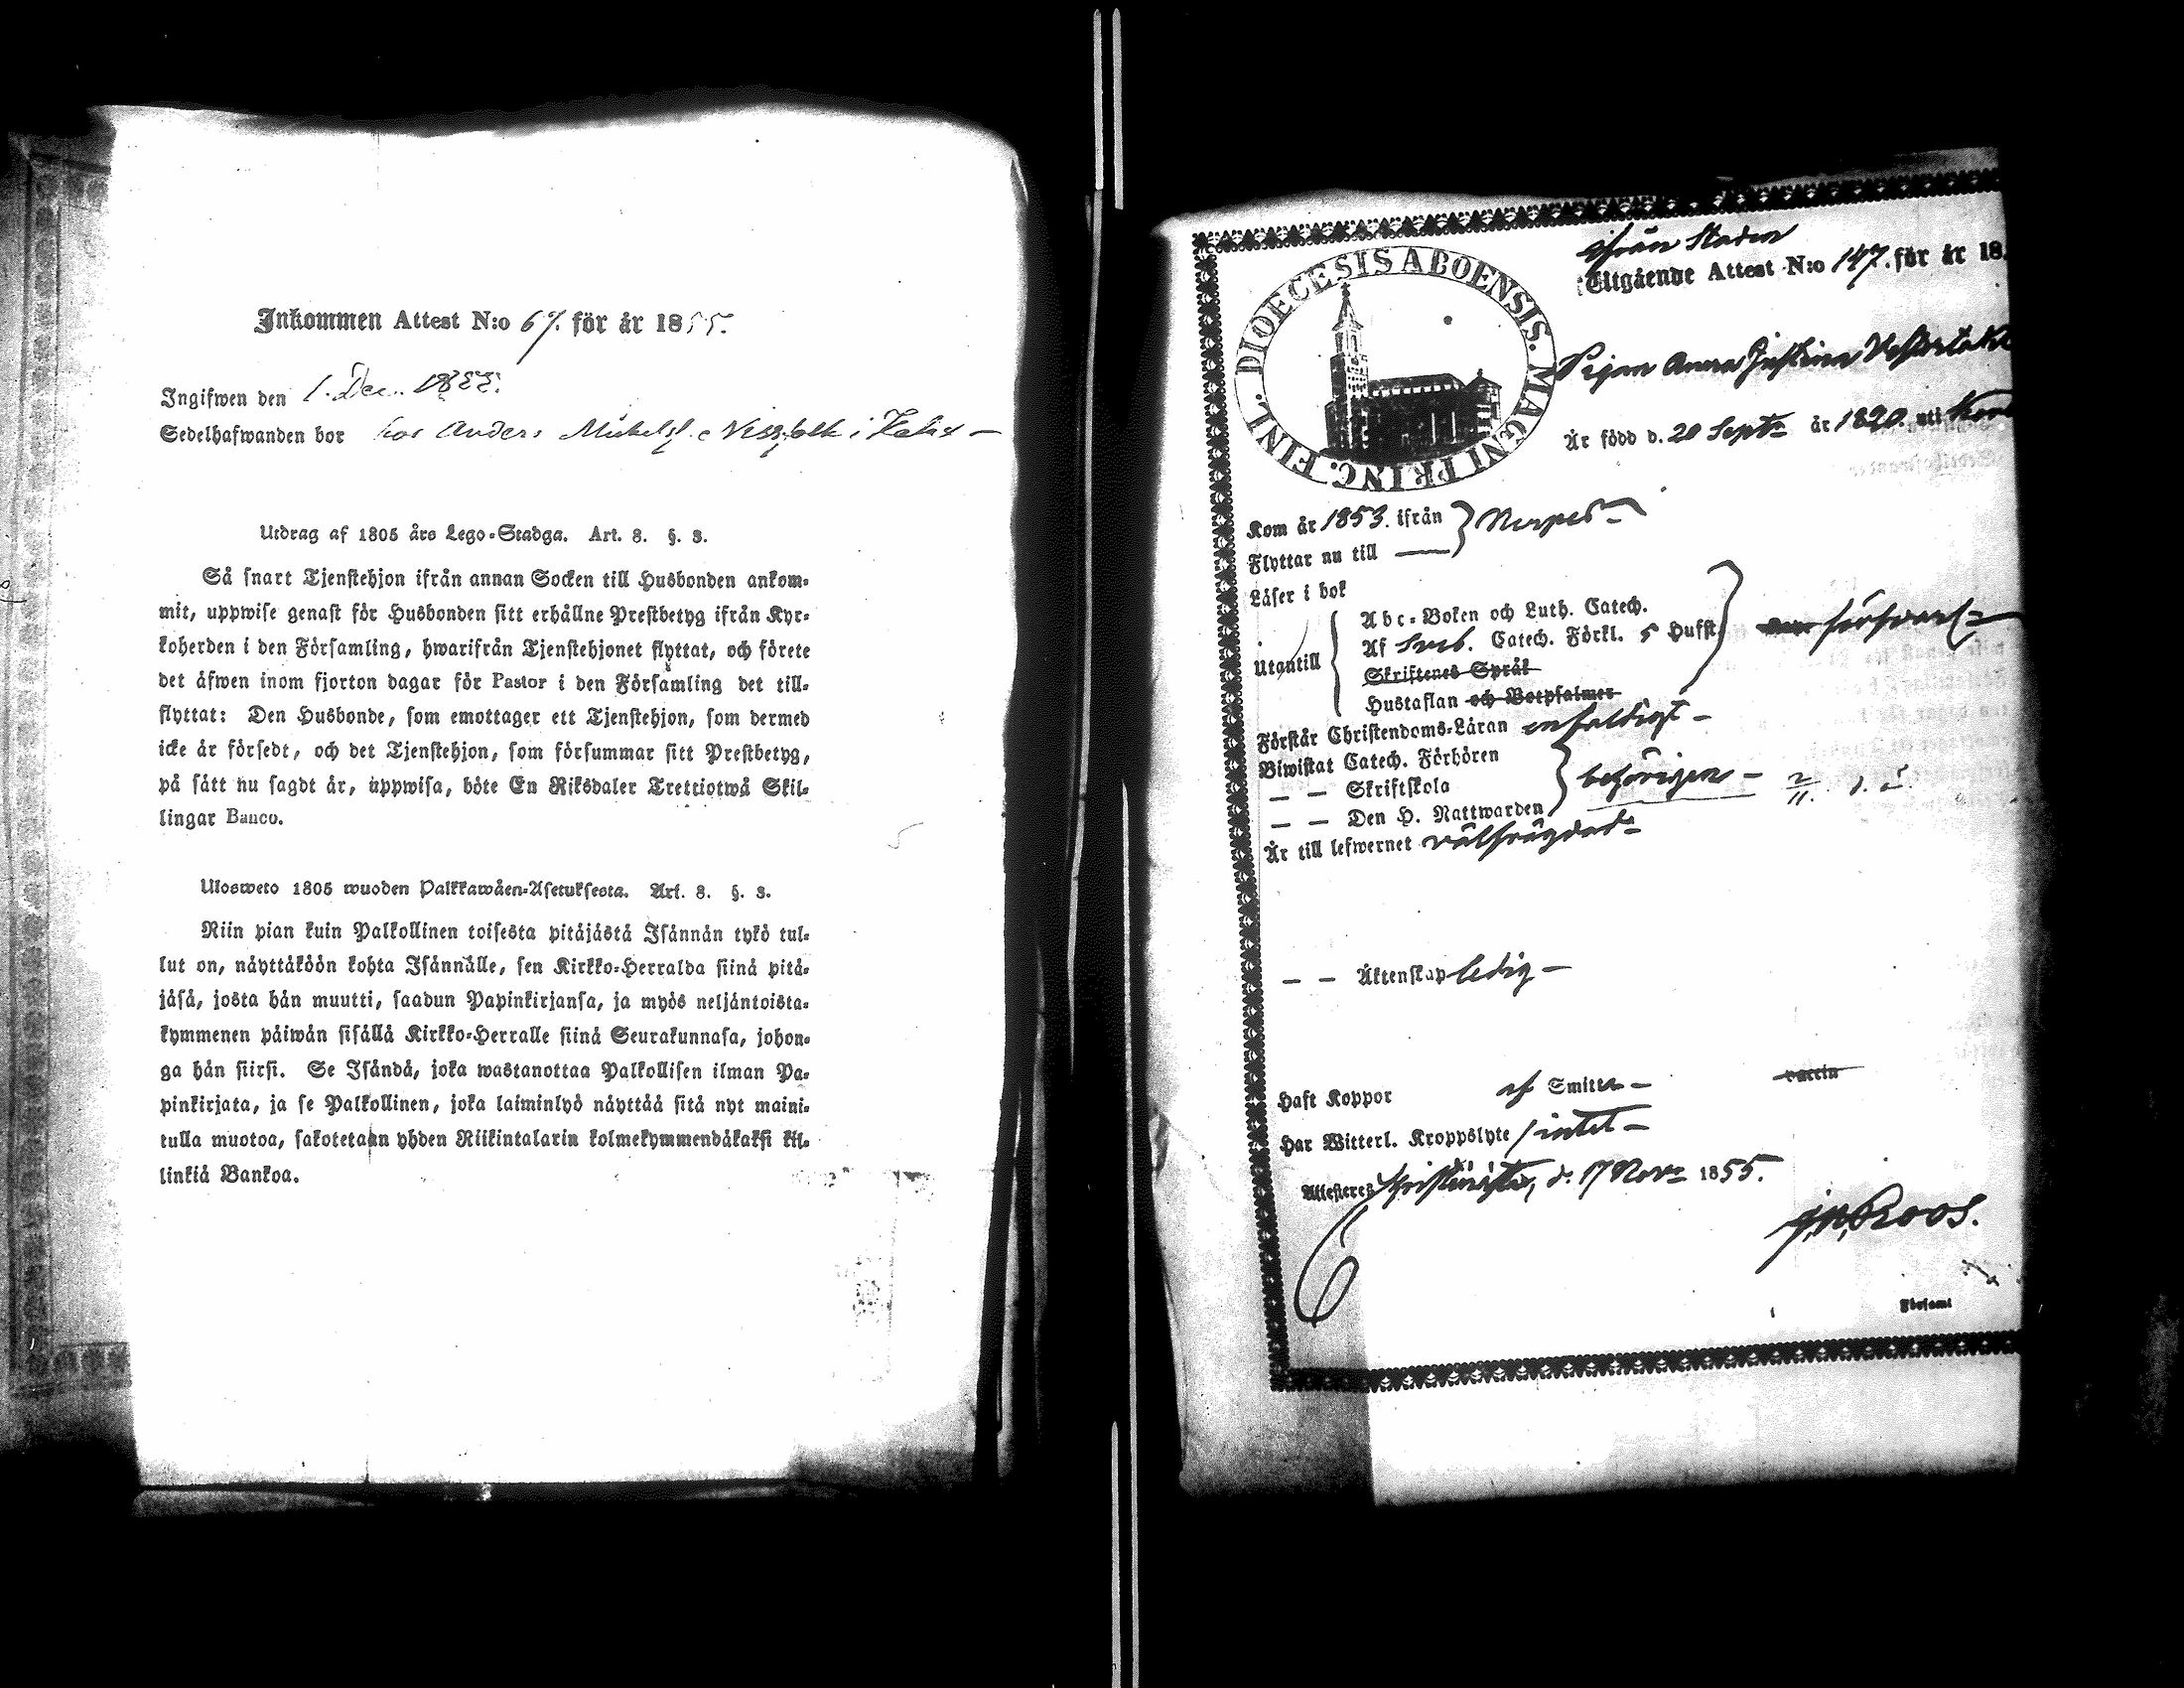 Inkommen Attest N:o 67. för år 1855.
Ingifwen den 1. Dec. 1855.
Sedelhafwanden bor hos Anders Mickels i
Utdrag af 1805 års Lego-Stadga. Art. 8. §. 3.
Så snart Tjenstehjon ifrån annan Socken till Husbonden ankom-
mit, uppwise genast för Husbonden sitt erhållne Prestbetyg ifrån Kyr-
koherden i den Församling, hwarifrån Tjenstehjonet flyttat, och förete
det äfwen inom fjorton dagar för Pastor i den Församling det till-
flyttat: Den Husbonde, som emottager ett Tjenstehjon, som dermed
icke är försedt, och det Tjenstehjon, som försummar sitt Prestbetyg,
på sätt nu sagdt är, uppwisa, böte En Riksdaler Trettiotwå Skil-
lingar Banco.
Ulosweto 1805 wuoden Palkkawäen-Asetuksesta. Art. 8. §. 3.
Niin pian kuin Palkollinen toisesta pitäjästä Isännän tykö tul-
lut on, näyttäköön kohta Isännälle, sen Kirkko-Herralda siinä pitä-
jäsä, josta hän muutti, saadun Papinkirjansa, ja myös neljäntoista-
kymmenen päiwän sisällä Kirkko-Herralle siinä Seurakunnasa, johon-
ga hän siirsi. Se Isändä, joka wastanottaa Palkollisen ilman Pa-
pinkirjata, ja se Palkollinen, joka laiminlyö näyttää sitä nyt maini-
tulla muotoa, sakotetaan yhden Riikintalarin kolmekymmendäkaksi kil-
linkiä Bankoa.
DIOECESIS ABOENSIS. MAGNI PRINC. FINL.
ifrån Staden
Utgående Attest N:o 147. för år 18
Pigan Anna
Är född d. 20 Sept. år 1820. uti
Kom år 1853. ifrån
Flyttar nu till
Nerpes
Läser i bok
Utantill
Abc-Boken och Luth. Catech.
Af Sveb. Catech. Förkl. 5 Hufst.
Skriftenes Språk
Hustaflan och Botpsalmer
försvarl.
Förstår Christendoms-Läran enfaldigt
Biwistat Catech. Förhören
— — Skriftskola
— — Den H. Nattwarden
behörigen
Är till lefwernet välfrägdad
— — Äktenskap ledig
Haft Koppor af Smitta vaccin
Har Witterl. Kroppslyte intet
Attesteres Christinestad, d. 17 Nov. 1855.
J. N. Roos.
Församl